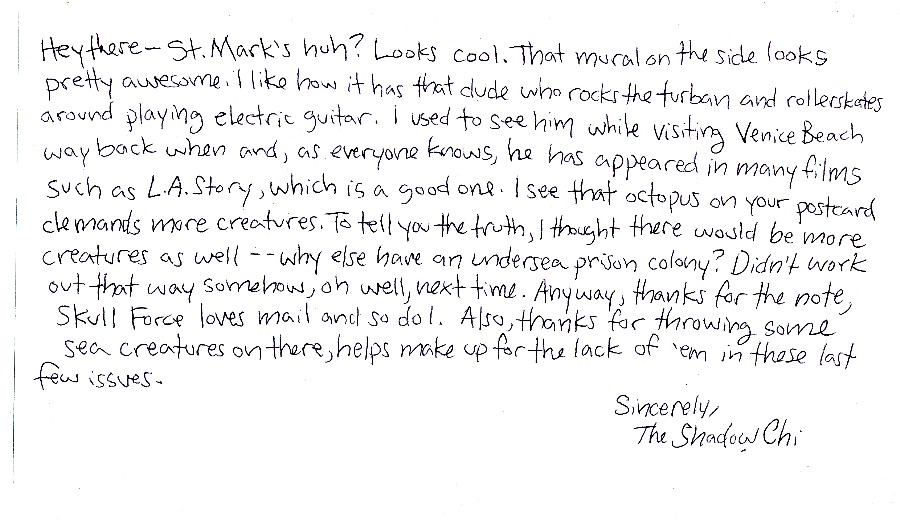 Hey there - St. Mark's huh? Looks cool. That mural on the side looks
pretty awesome. I like how it has that dude who rocks the turban and rollerskates
around playing electric guitar. I used to see him while visiting Venice Beach
way back when and, as everyone knows, he has appeared in many films
such as L.A. Story, which is a good one. I see that octopus on your postcard
demands more creatures. To tell you the truth, I thought there would be more
creatures as well -- why else have an undersea prison colony? Didn't work
out that way somehow, oh well, next time. Anyway, thanks for the note,
Skull Force loves mail and so do I. Also, thanks for throwing some
sea creatures on there, helps make up for the lack of 'em in these last
few issues.
Sincerely,
The Shadow Chi